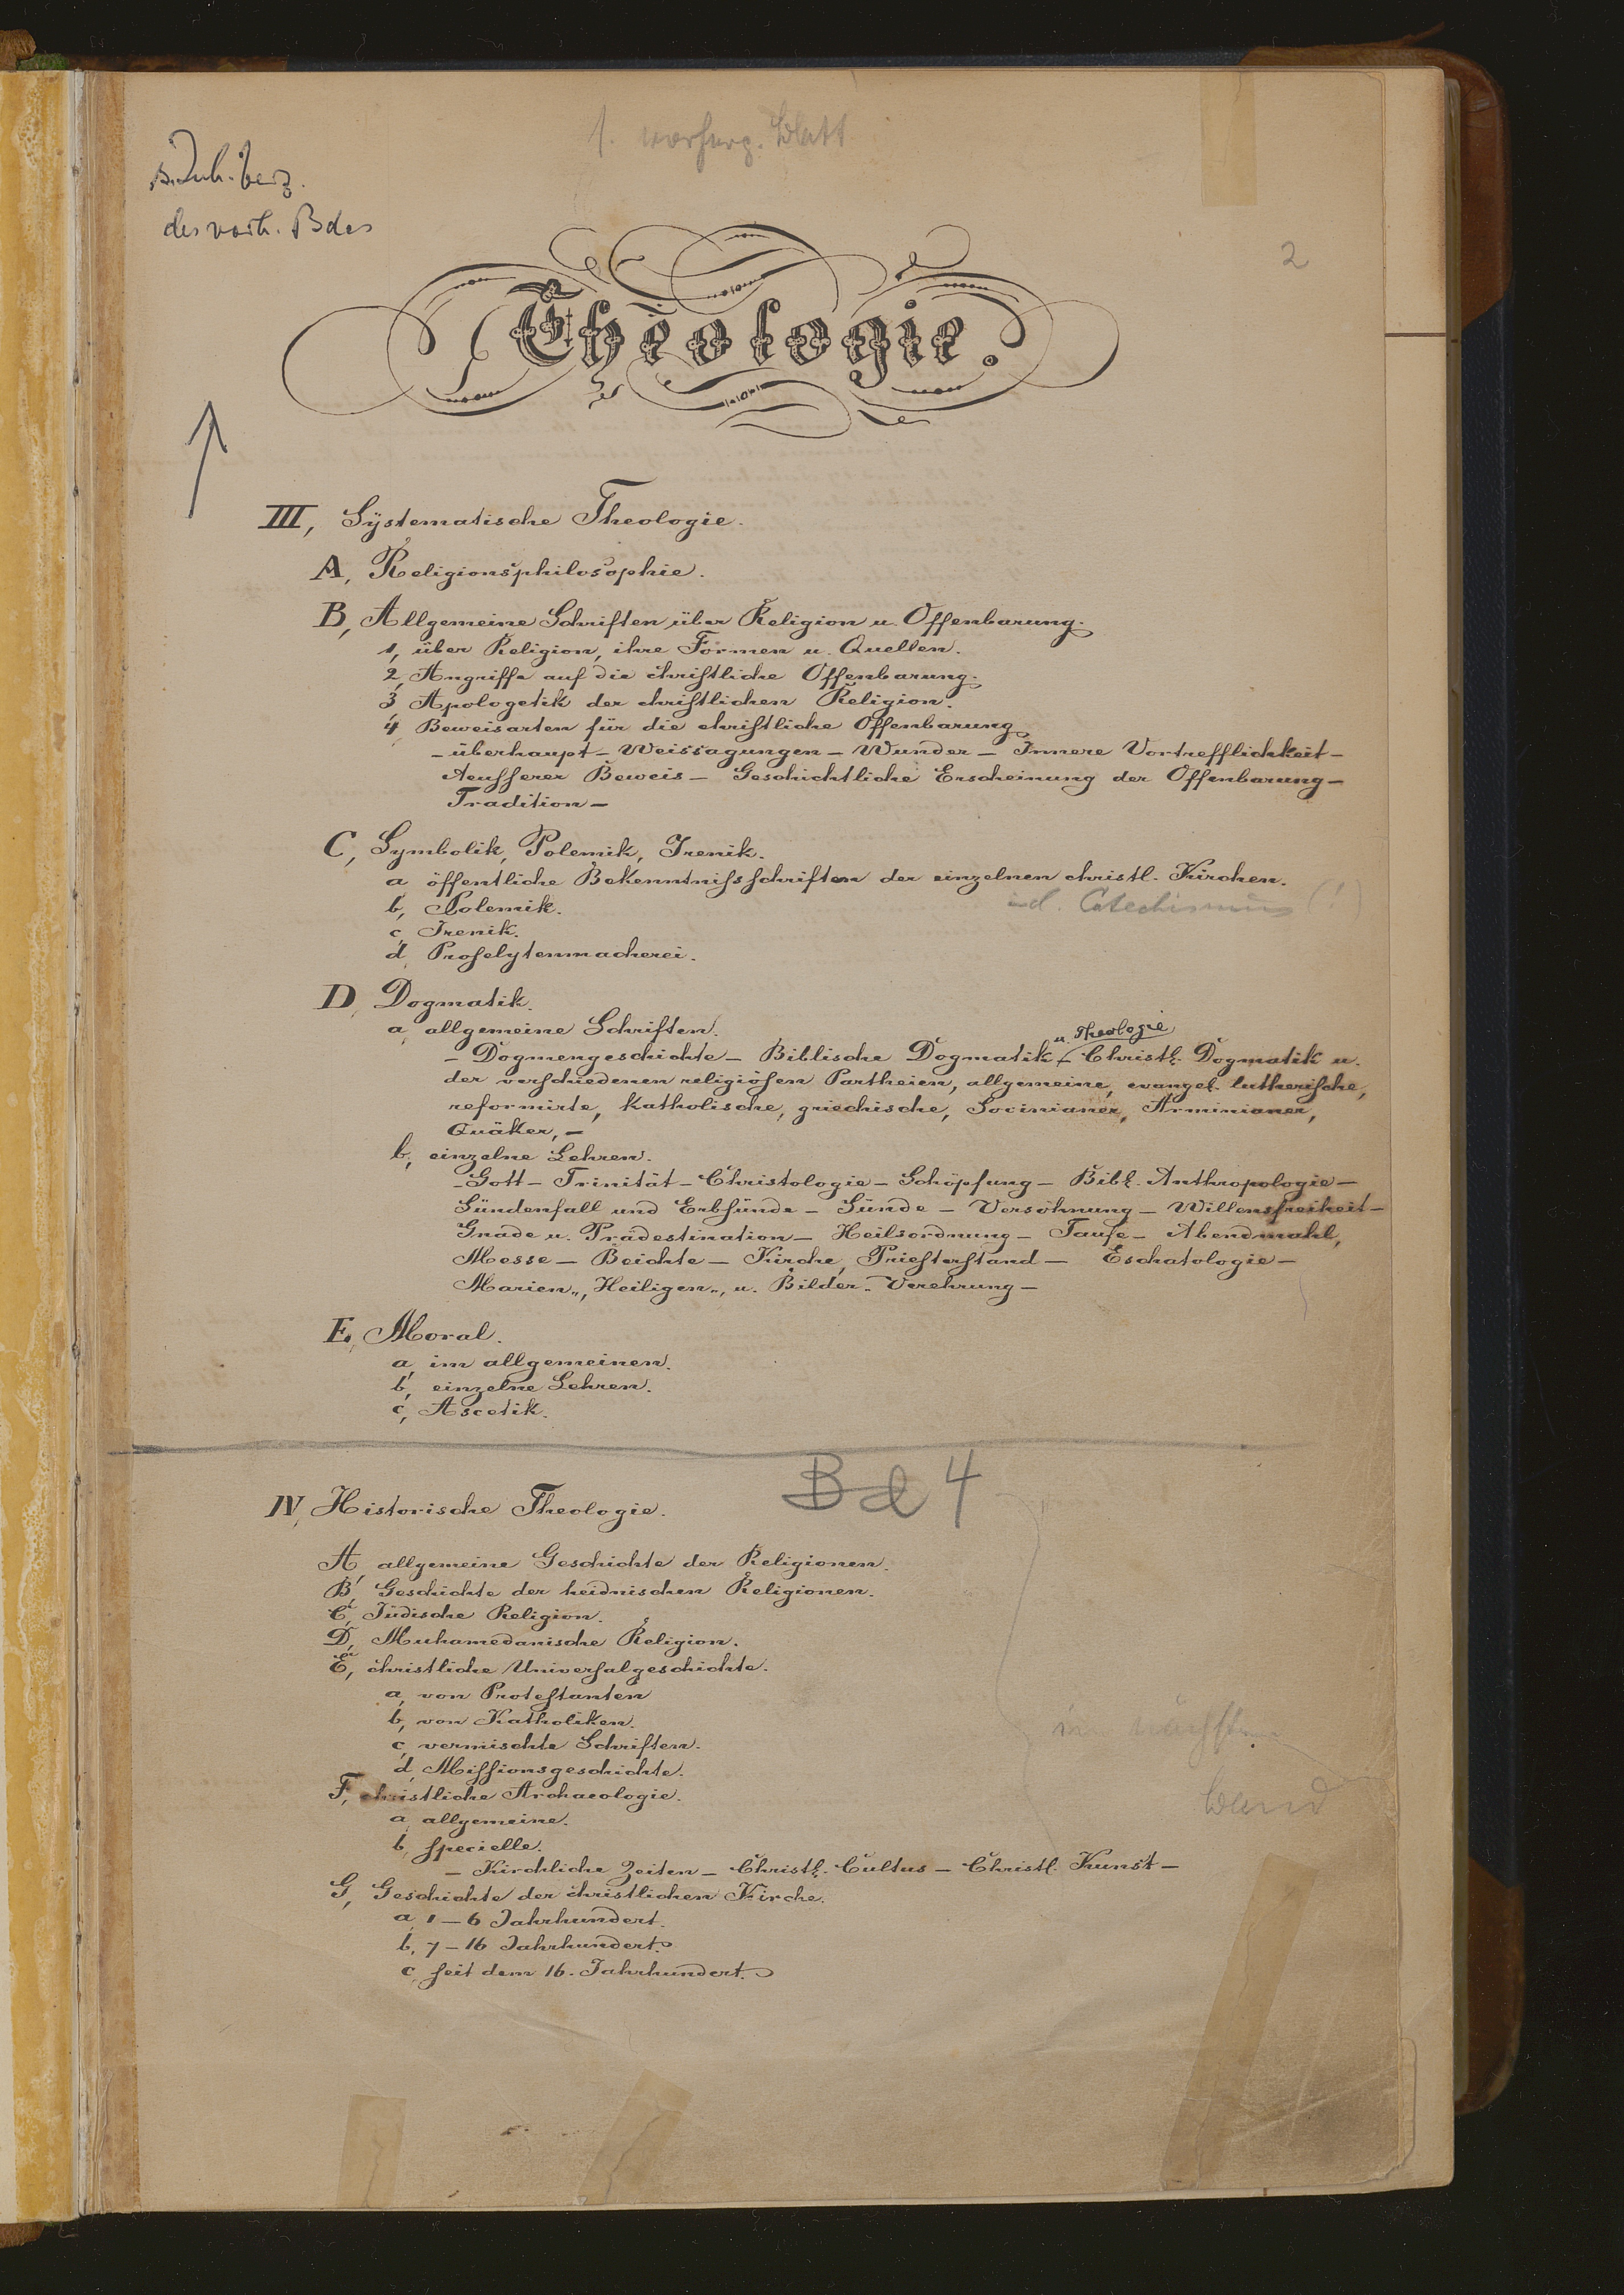 s. Inh. Verz.
des vorh. Bdes
2
Theologie.
III, Systematische Theologie.
A, Religionsphilosophie.
B, Allgemeine Schriften über Religion u. Offenbarung.
1, über Religion, ihre Formen u. Quellen.
2, Angriffe auf die christliche Offenbarung.
3, Apologetik der christlichen Religion.
4, Beweisarten für die christliche Offenbarung
– überhaupt – Weissagungen – Wunder – Innere Vortrefflichkeit –
Aeusserer Beweis – Geschichtliche Erscheinung der Offenbarung –
Tradition –
C, Symbolik, Polemik, Irenik.
a, öffentliche Bekenntnissschriften der einzelnen christl. Kirchen.
b, Polemik.
Catechismus (!)
c, Irenik.
d, Proselytenmacherei.
D, Dogmatik.
a, allgemeine Schriften.
u. Theologie
– Dogmengeschichte – Biblische Dogmatik – Christl. Dogmatik u.
der verschiedenen religiösen Partheien, allgemeine, evangel. lutherische,
reformirte, katholische, griechische, Socinianer, Arminianer,
Quäker, –
b, einzelne Lehren.
– Gott – Trinität – Christologie – Schöpfung – Bibl. Anthropologie –
Sündenfall und Erbsünde – Sünde – Versöhnung – Willensfreiheit –
Gnade u. Prädestination – Heilsordnung – Taufe – Abendmahl,
Messe – Beichte – Kirche, Priesterstand – Eschatologie –
Marien„, Heiligen„, u. Bilder„ Verehrung –
E, Moral.
a, im allgemeinen.
b, einzelne Lehren.
c, Ascetik.
Bd 4
IV, Historische Theologie.
A, allgemeine Geschichte der Religionen.
B, Geschichte der heidnischen Religionen.
C, Jüdische Religion.
D, Muhamedanische Religion.
E, christliche Universalgeschichte.
a, von Protestanten
b, von Katholiken.
c, vermischte Schriften.
im nächsten
d, Missionsgeschichte.
F, christliche Archaeologie.
Band
a, allgemeine.
b, specielle.
– Kirchliche Zeiten – Christl. Cultus – Christl. Kunst –
G, Geschichte der christlichen Kirche.
a, 1–6 Jahrhundert.
b, 7–16 Jahrhundert.
c, seit dem 16. Jahrhundert.